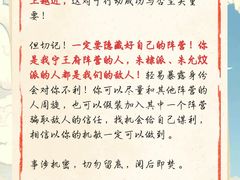 王越近，这对于行动成功与否至关重
要！
但切记！一定要隐藏好自己的阵营！你
是我宁王府阵营的人，朱棣派、朱允炆
派的人都是我们的敌人！轻易暴露身份
会对你不利！你可以尽量和其他阵营的
人周旋，也可以假装加入其中一个阵营
骗取敌人的信任，找机会给自己谋利，
相信以你的机敏一定可以做到。
事涉机密，切勿留底，阅后即焚。